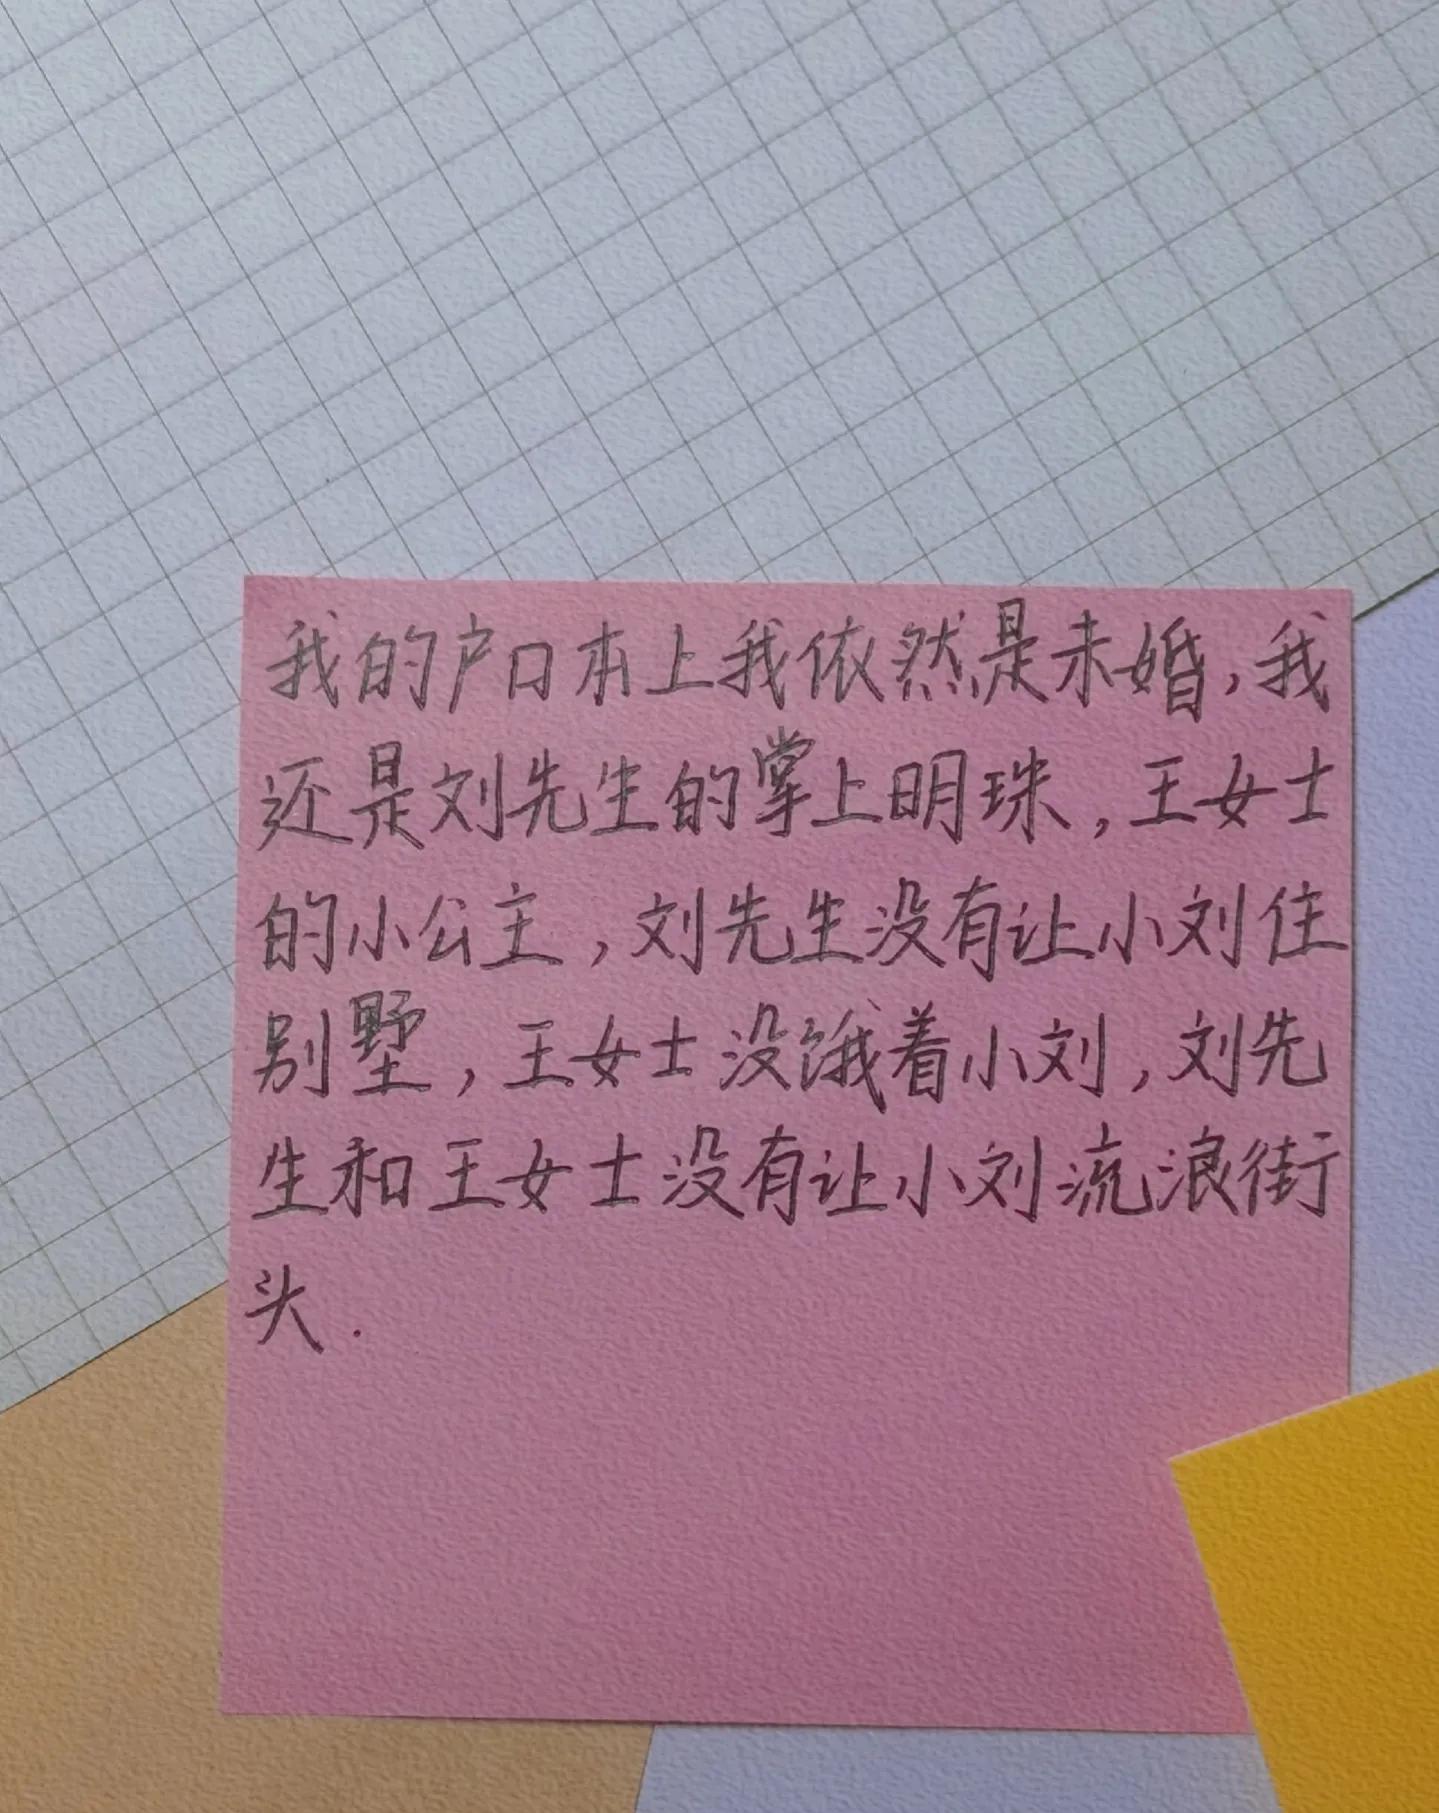 我的户口本上我依然是未婚,我
还是刘先生的掌上明珠,王女士
的小公主,刘先生没有让小刘住
别墅,王女士没饿着小刘,刘先
生和王女士没有让小刘流浪街
头.